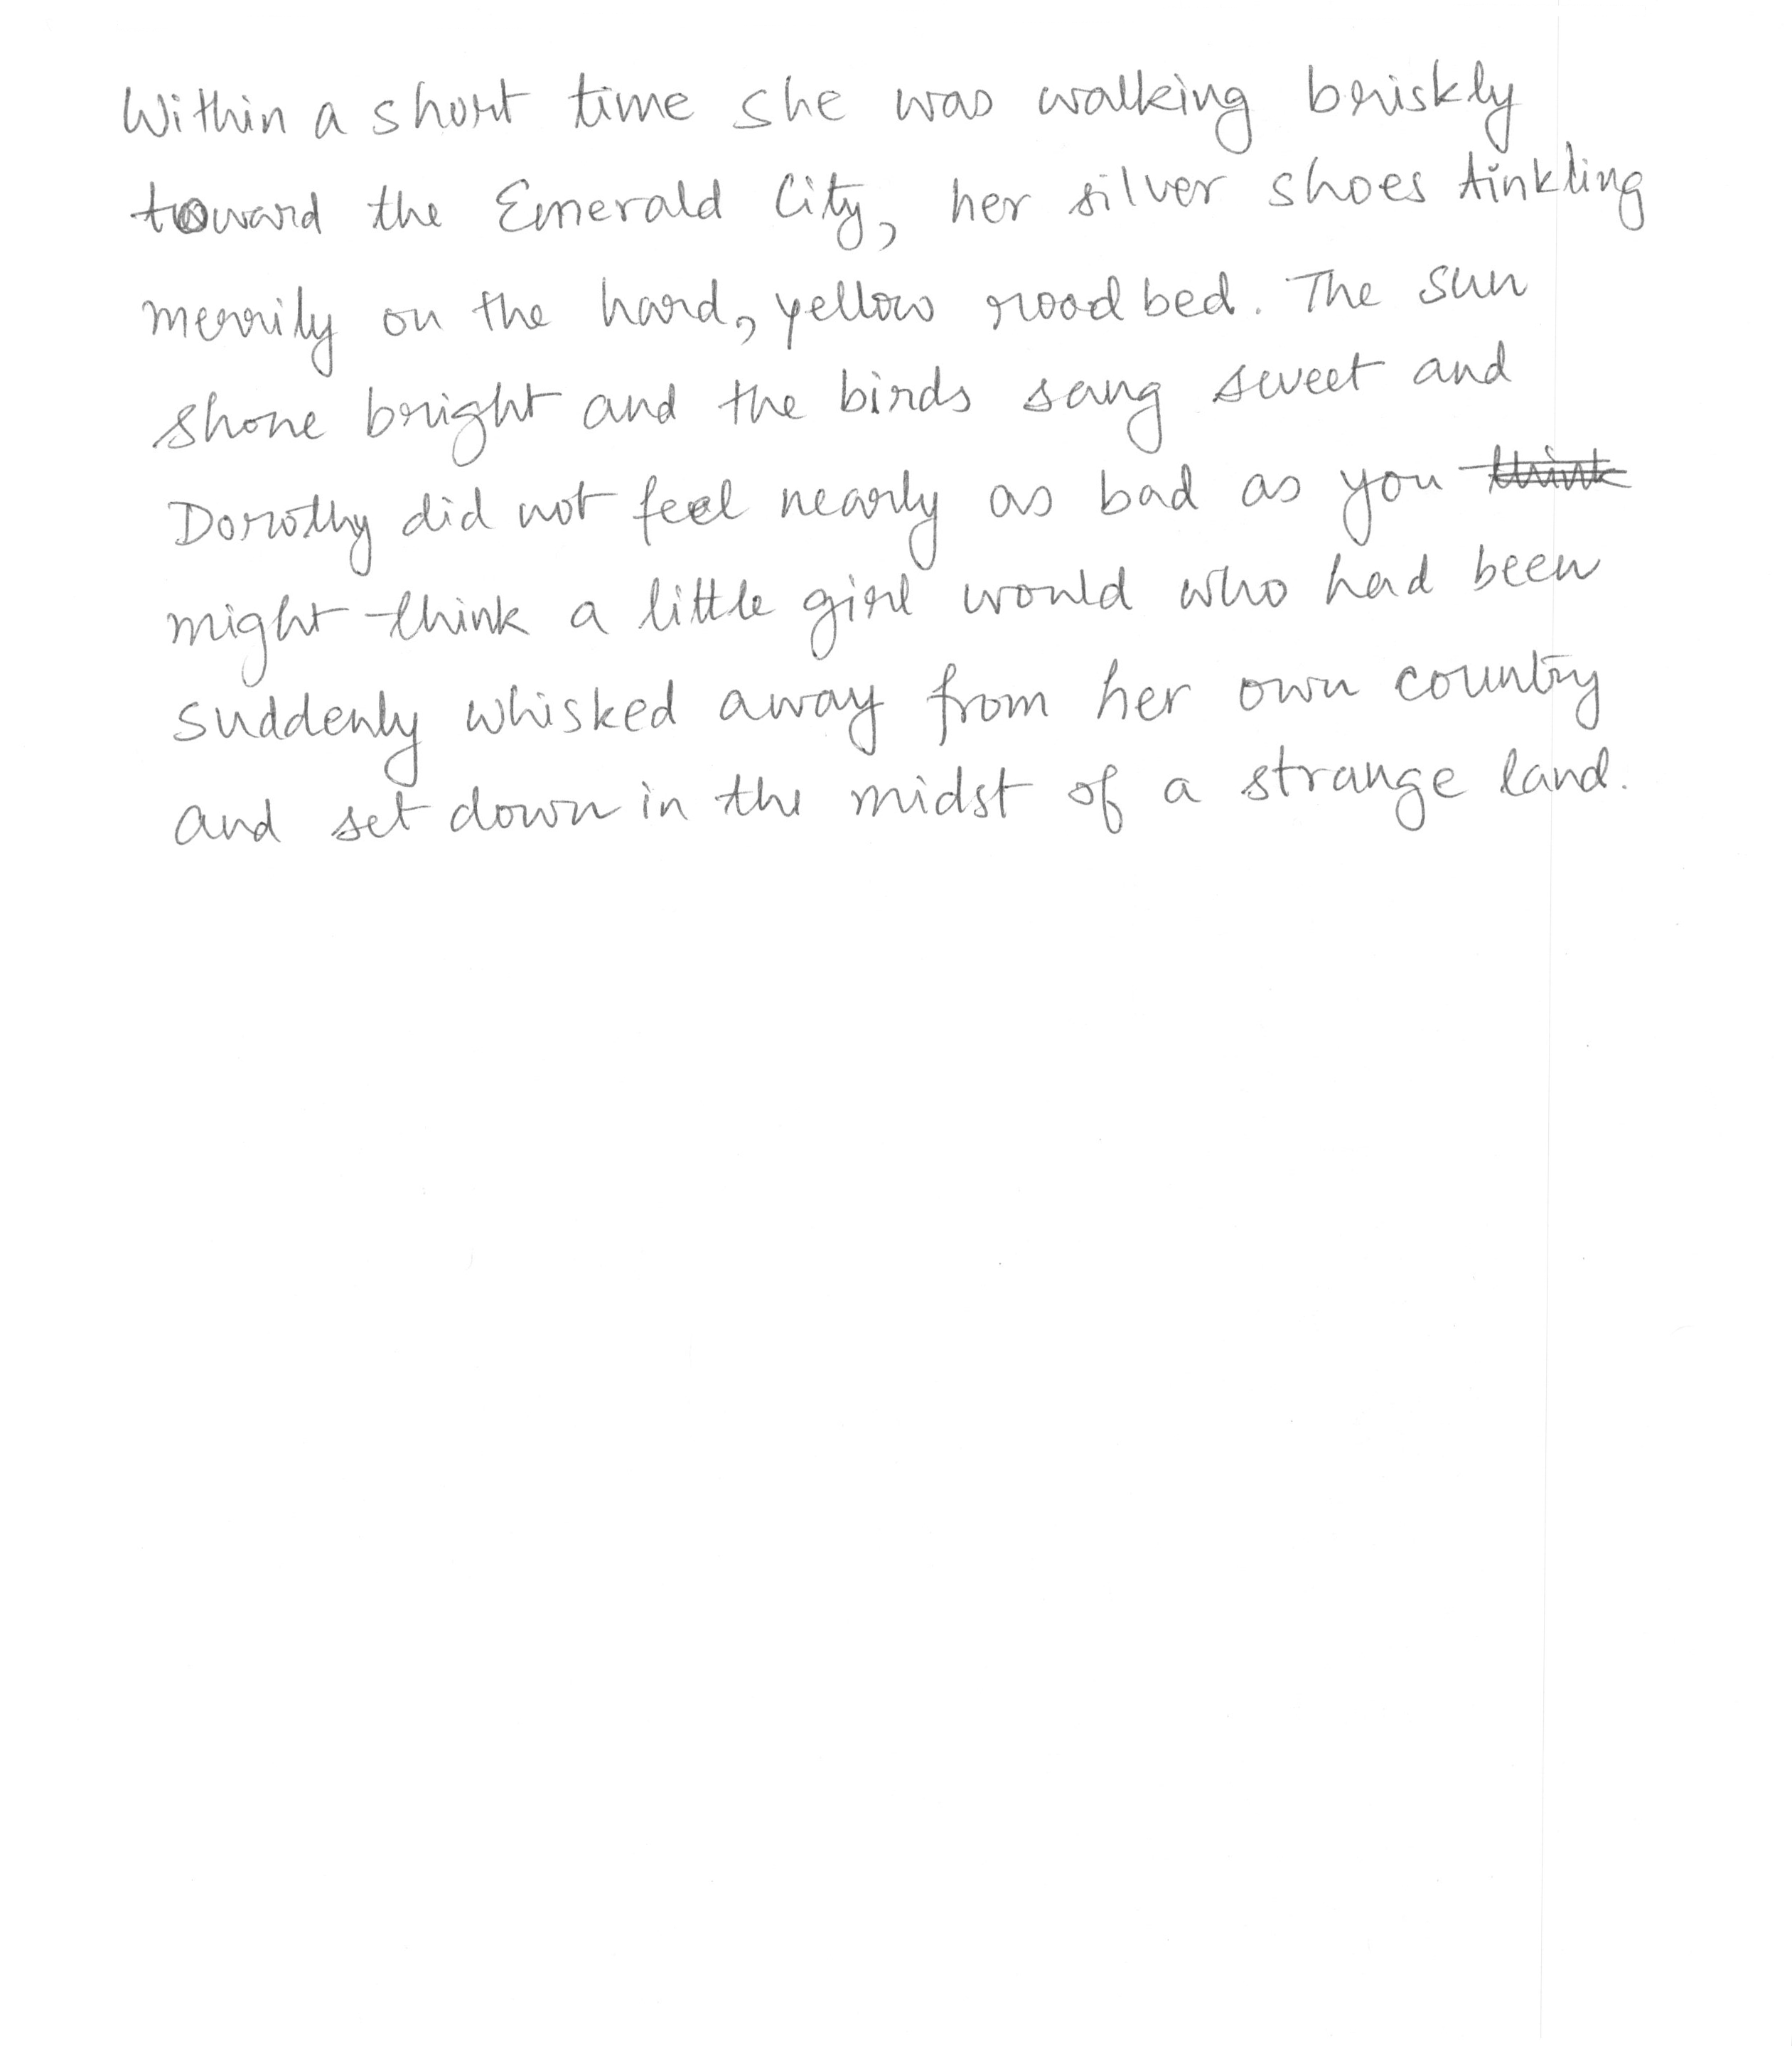 Within a short time she was walking briskly
toward the Emerald City, her silver shoes tinkling
merrily on the hard, yellow roadbed. The sun
shone bright and the birds sang sweet and
Dorothy did not feel nearly as bad as you ~~think~~
might think a little girl would who had been
suddenly whisked away from her own country
and set down in the midst of a strange land.